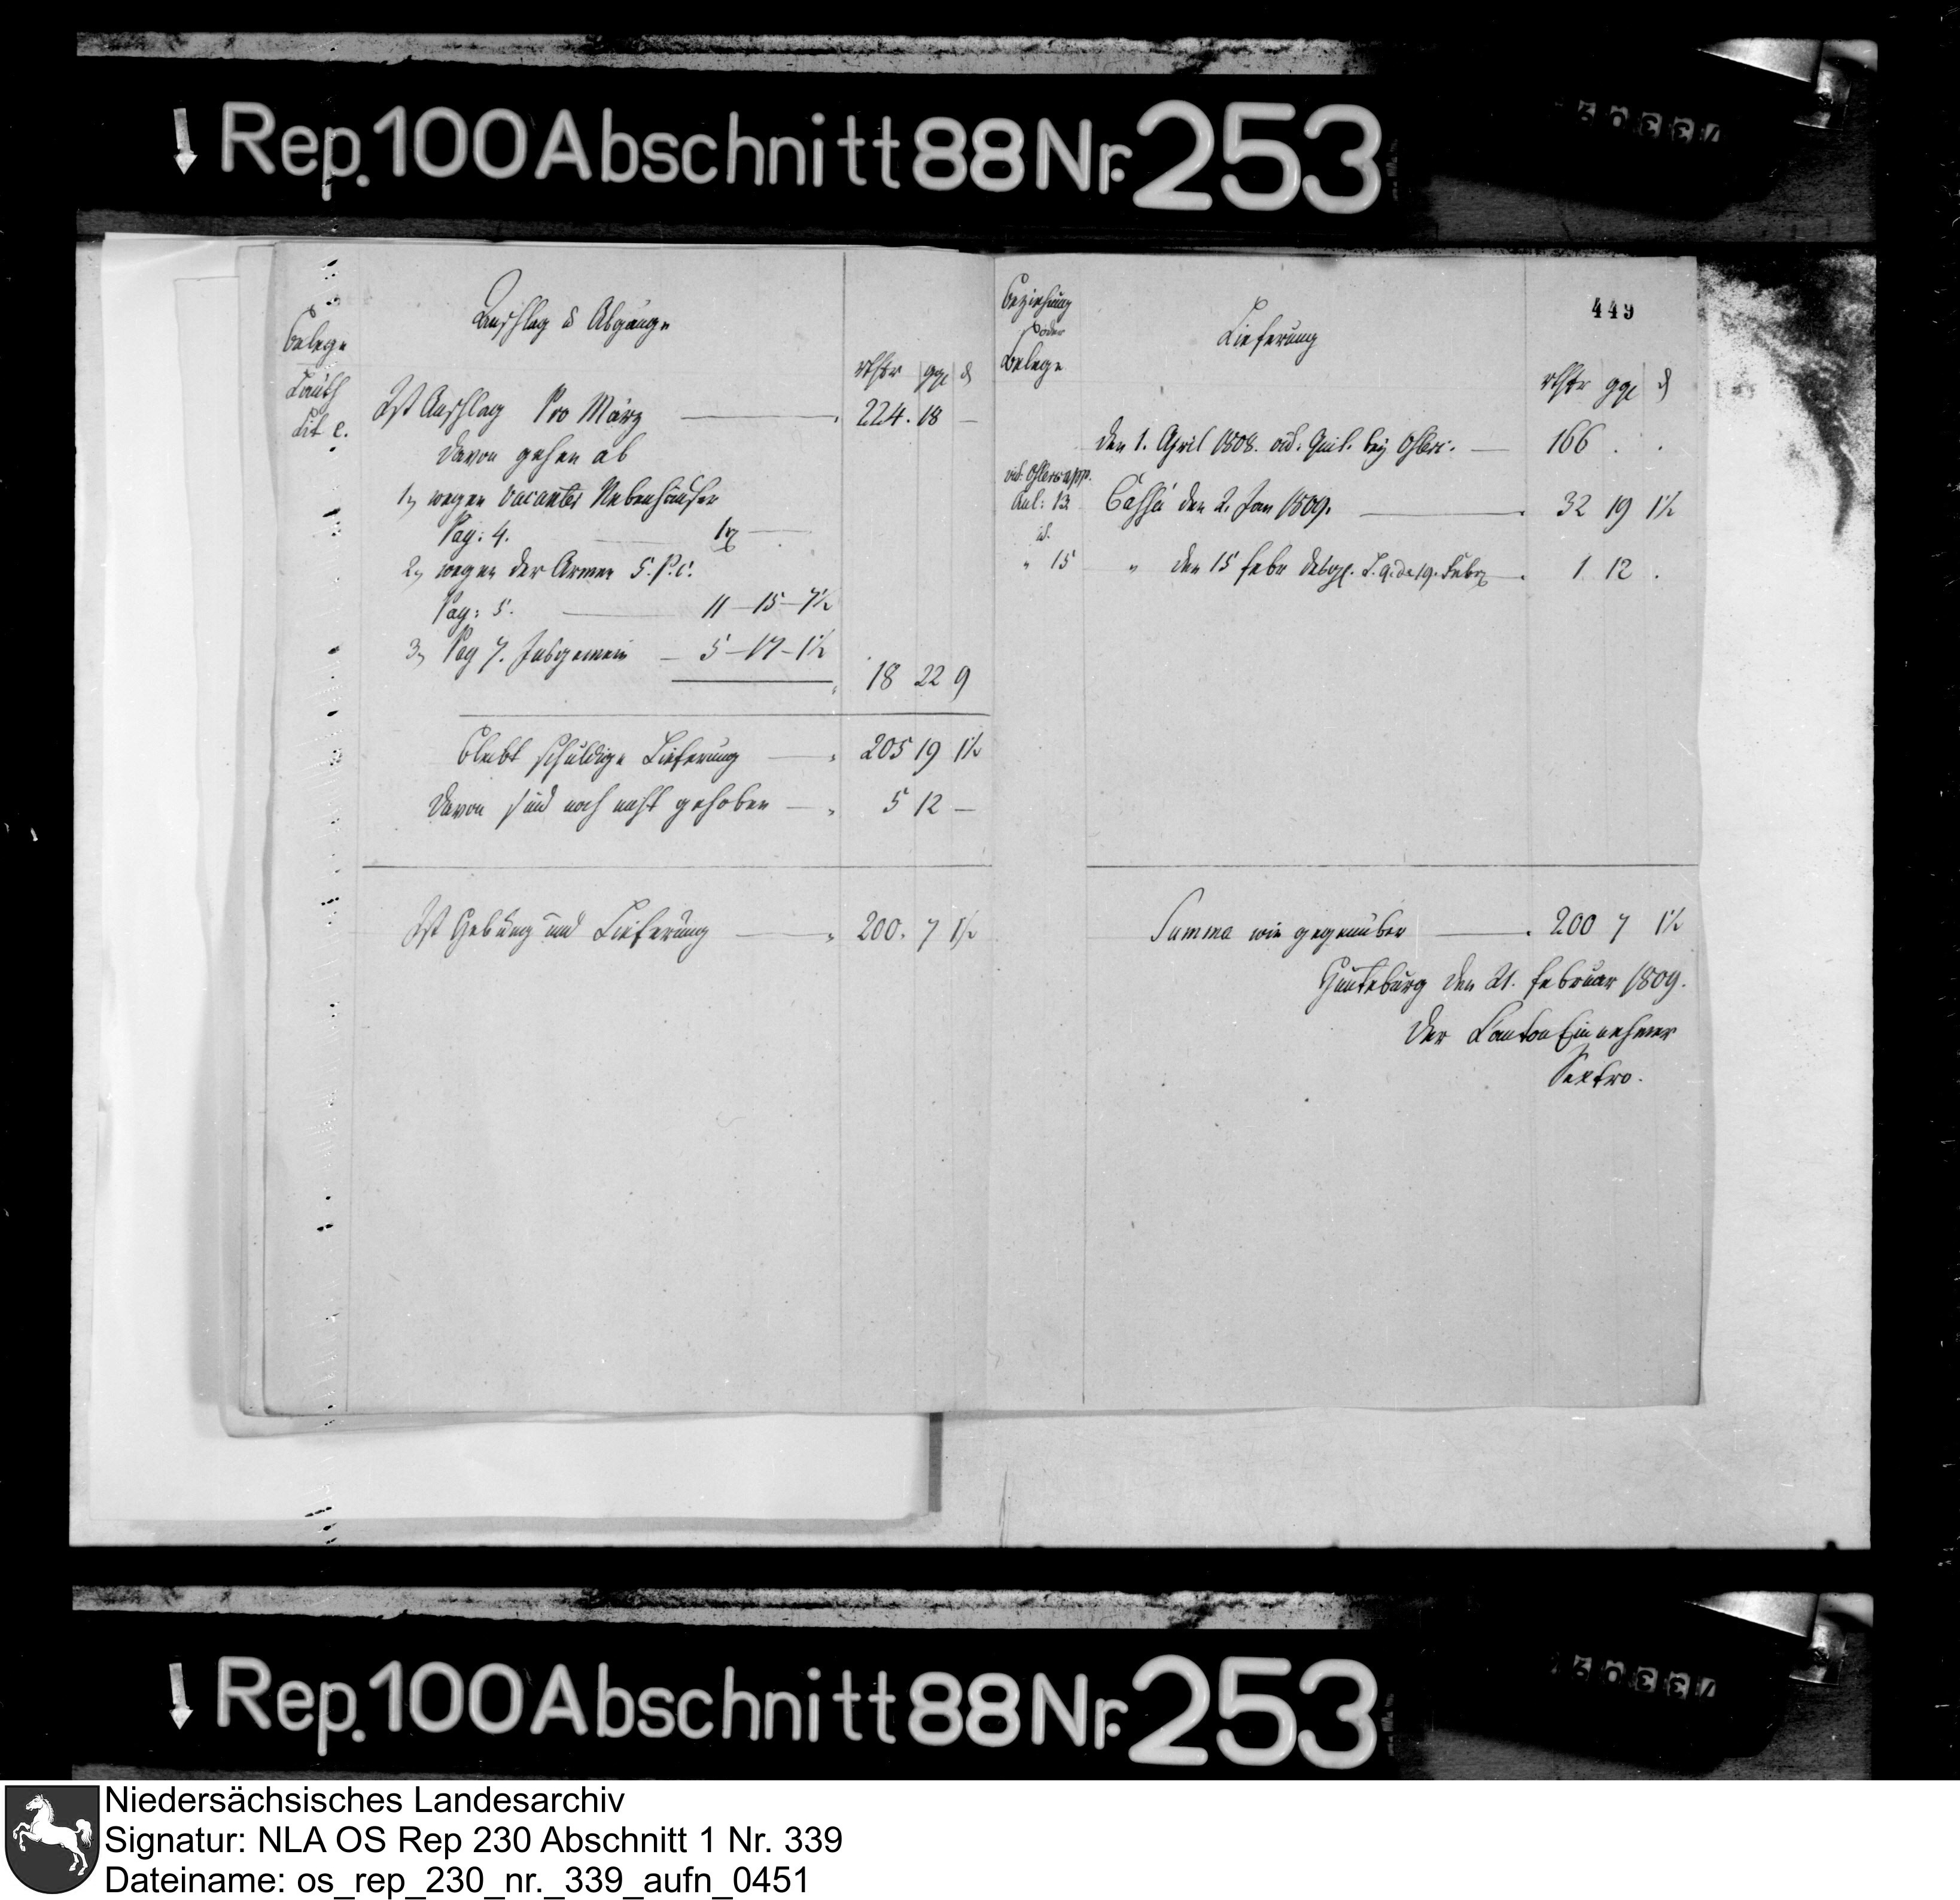 ↓ Rep. 100 Abschnitt 88 Nr. 253
Anschlag u Abgänge
Belege
rthlr ggl d
Lauth
Lit C.
Ist Anschlag Pro März 224. 18 —
davon gehen ab
1, wegen vacanter Nebenhäuser
Pag: 4. 1
2, wegen der Armen 5. P. C.
Pag: 5. 11 — 15 — 7½
3, Pag 7. Insgemein — 5 — 17 — 1½
18 22 9
bleibt schuldige Lieferung 205 19 1½
davon sind noch nicht gehoben 5 12 —
Ist Hebung und Lieferung 200. 7 1½
449
Beziehung
oder
Belege
Lieferung
rthlr ggl d
den 1. April 1808. vid. Quit. bey 166 . .
Anl: 13 Cassa den 2. Jan 1809. 32 19 1½
id.
" 15 " den 15 febr 1 12 .
Summa wie gegenüber 200 7 1½
Hunteburg den 21. Februar 1809.
Der Canton Einnehmer
Sextro.
↓ Rep. 100 Abschnitt 88 Nr. 253
Niedersächsisches Landesarchiv
Signatur: NLA OS Rep 230 Abschnitt 1 Nr. 339
Dateiname: os_rep_230_nr._339_aufn_0451